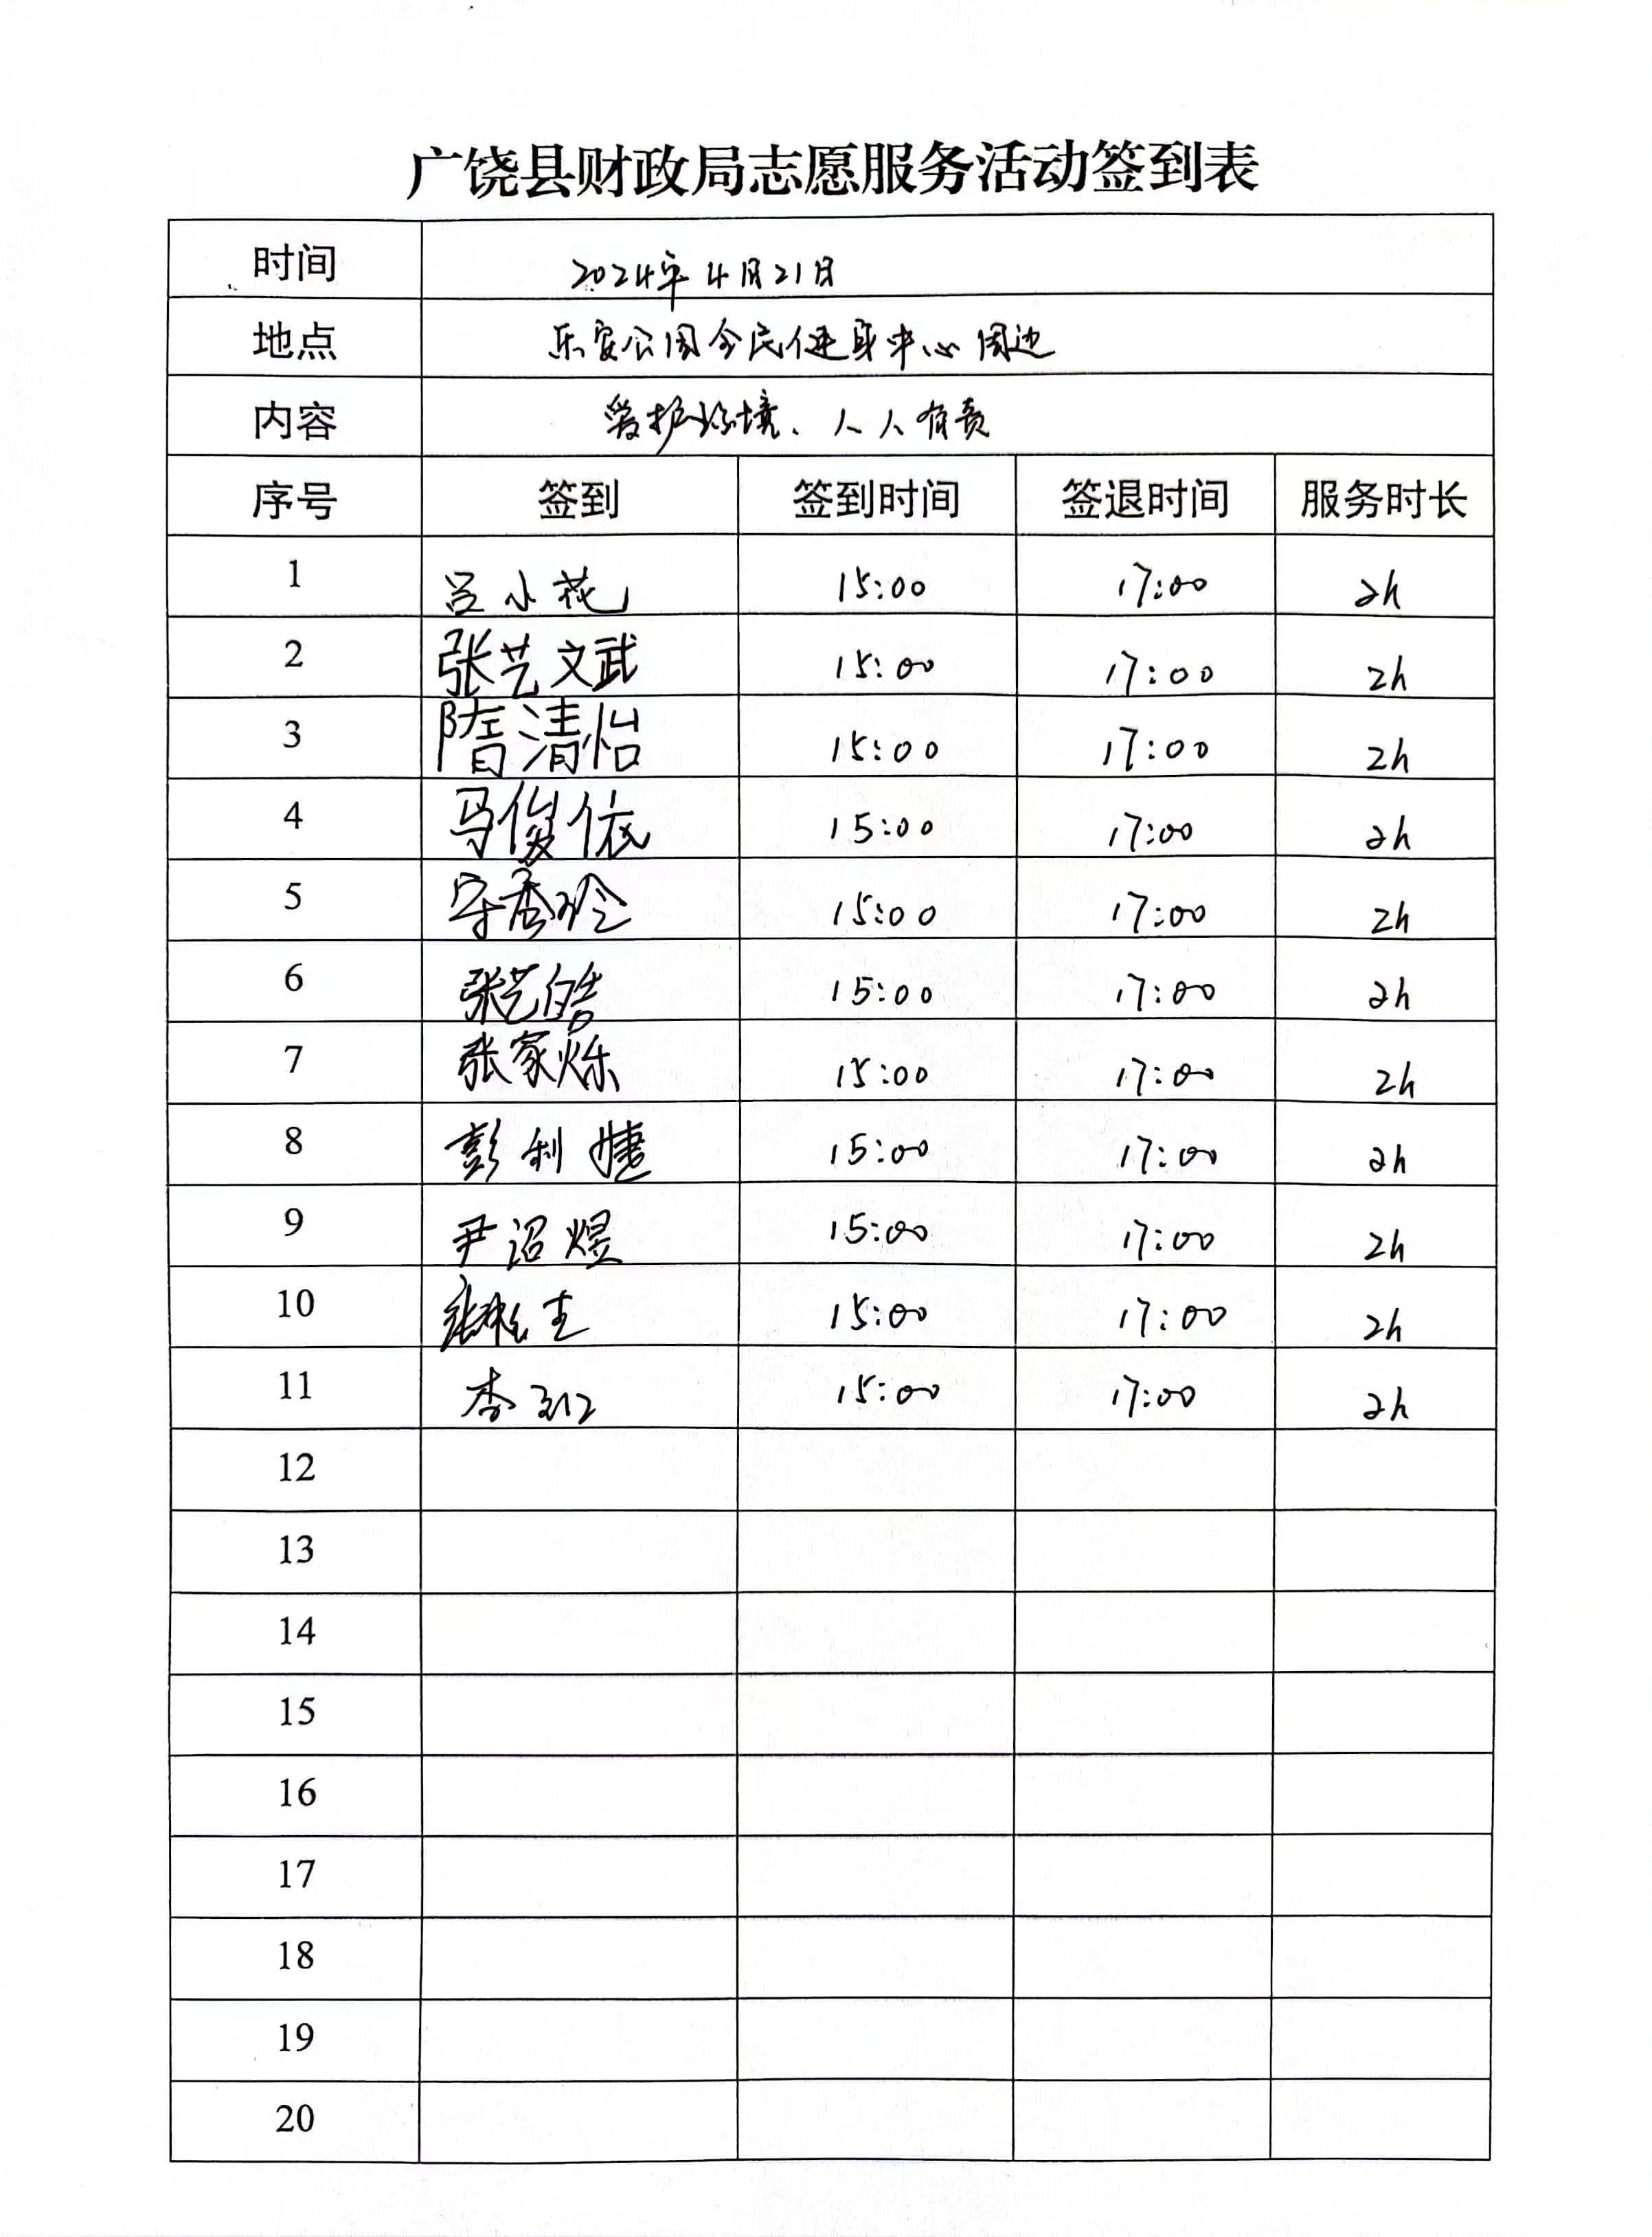 广饶县财政局志愿服务活动签到表
时间 2024年4月21日
地点 乐安公园全民健身中心周边
内容 爱护环境、人人有责
序号 签到 签到时间 签退时间 服务时长
1 吕小花 15:00 17:00 2h
2 张艺文武 15:00 17:00 2h
3 隋清怡 15:00 17:00 2h
4 马俊依 15:00 17:00 2h
5 宋秀玲 15:00 17:00 2h
6 张艺皓 15:00 17:00 2h
7 张家烁 15:00 17:00 2h
8 彭利婕 15:00 17:00 2h
9 尹诏煜 15:00 17:00 2h
10 15:00 17:00 2h
11 李 15:00 17:00 2h
12
13
14
15
16
17
18
19
20